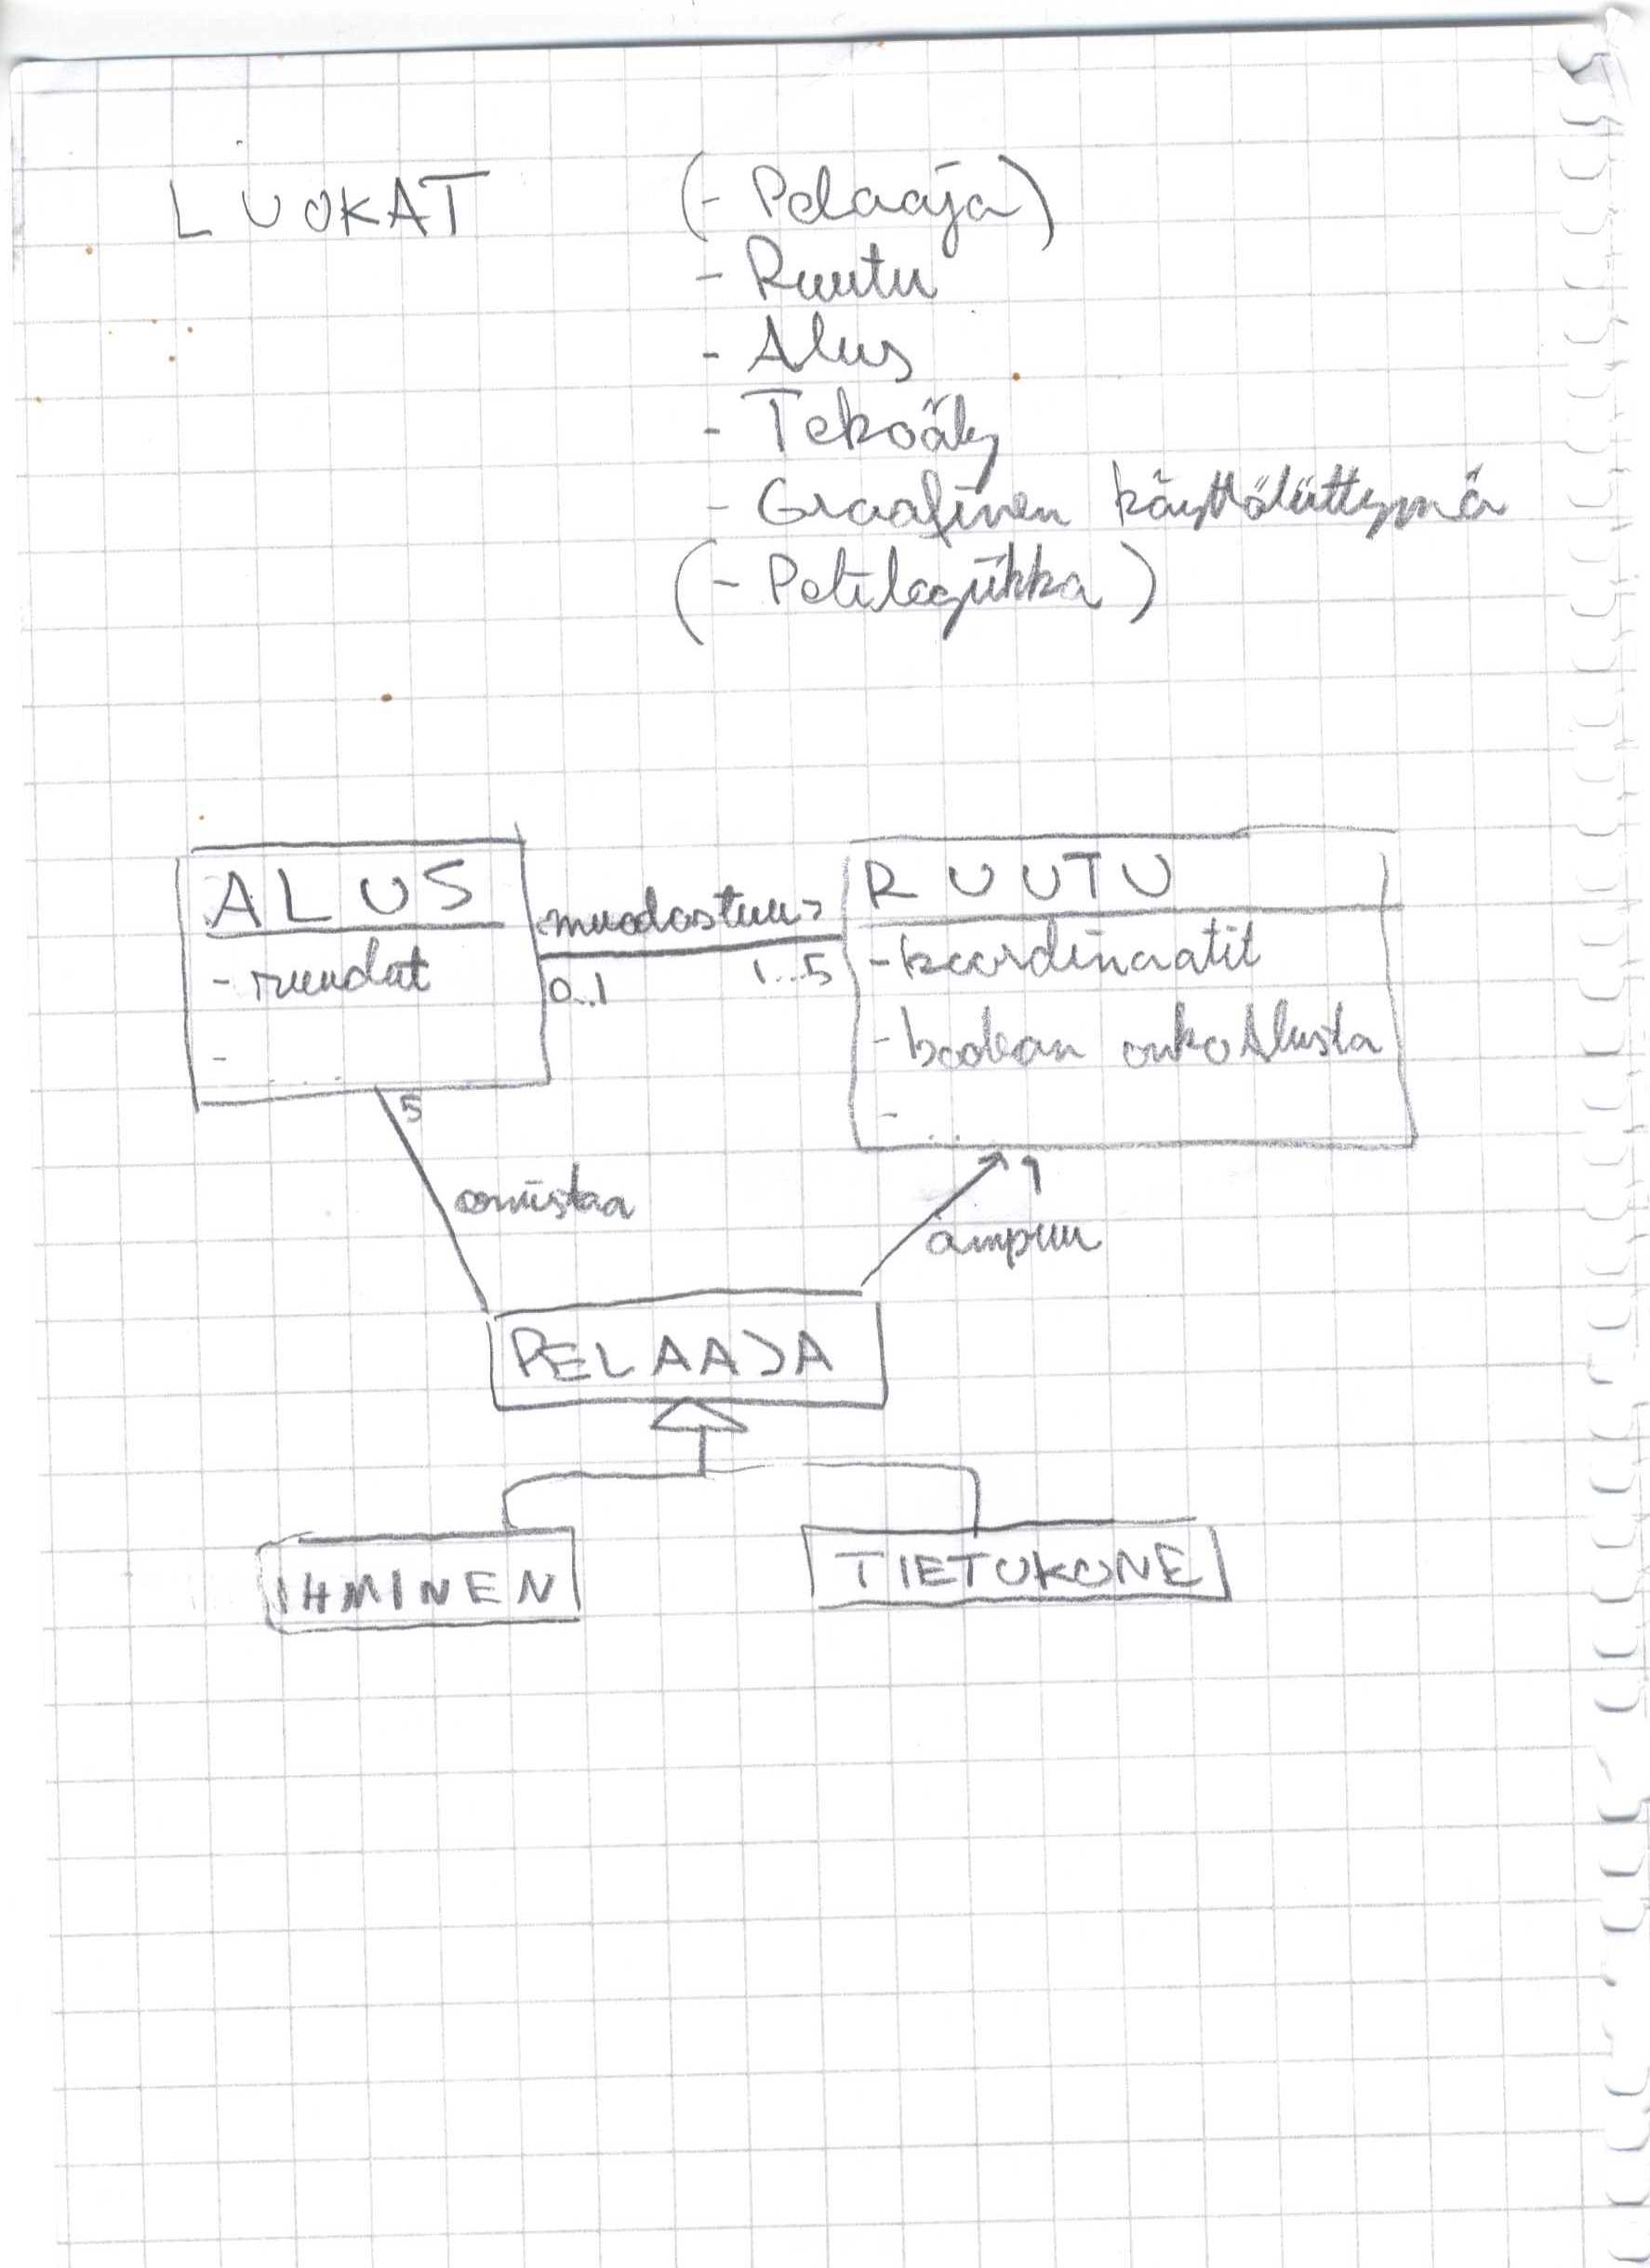 LUOKAT (- Pelaaja)
- Ruutu
- Alus
- Tekoäly
- Graafinen käyttöliittymä
(- Pelilogiikka)
ALUS
- ruudut
- ....
muodostuu >
0..1 1...5
RUUTU
- koordinaatit
- boolean onkoAlusta
- ...
5
omistaa
1
ampuu
PELAAJA
IHMINEN
TIETOKONE